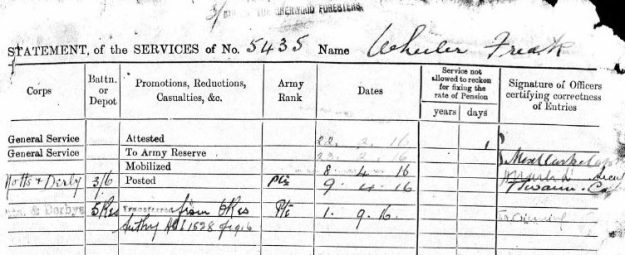 3/6 SHERWOOD FORESTERS
STATEMENT, of the SERVICES of No. 5435 Name Wheeler Frank
Corps Battn. or Depot Promotions, Reductions, Casualties, &c. Army Rank Dates Service not allowed to reckon for fixing the rate of Pension years days Signature of Officers certifying correctness of Entries
General Service Attested 22. 2. 16 1
General Service To Army Reserve 23. 2. 16
Mobilized 8. 4. 16
Notts & Derby 3/6 Posted Pte 9. 4. 16
& Derbys 5 Res Transferred from 6 Res Pte 1. 9. 16
Authy ACI 1528 of 1916